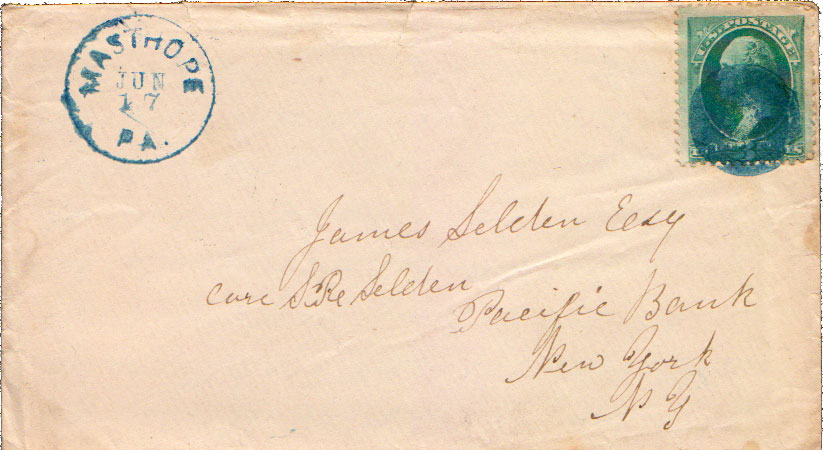 MASTHOPE
JUN
17
PA.
U.S. POSTAGE
James Selden Esq
care S. R. Selden
Pacific Bank
New York
N Y